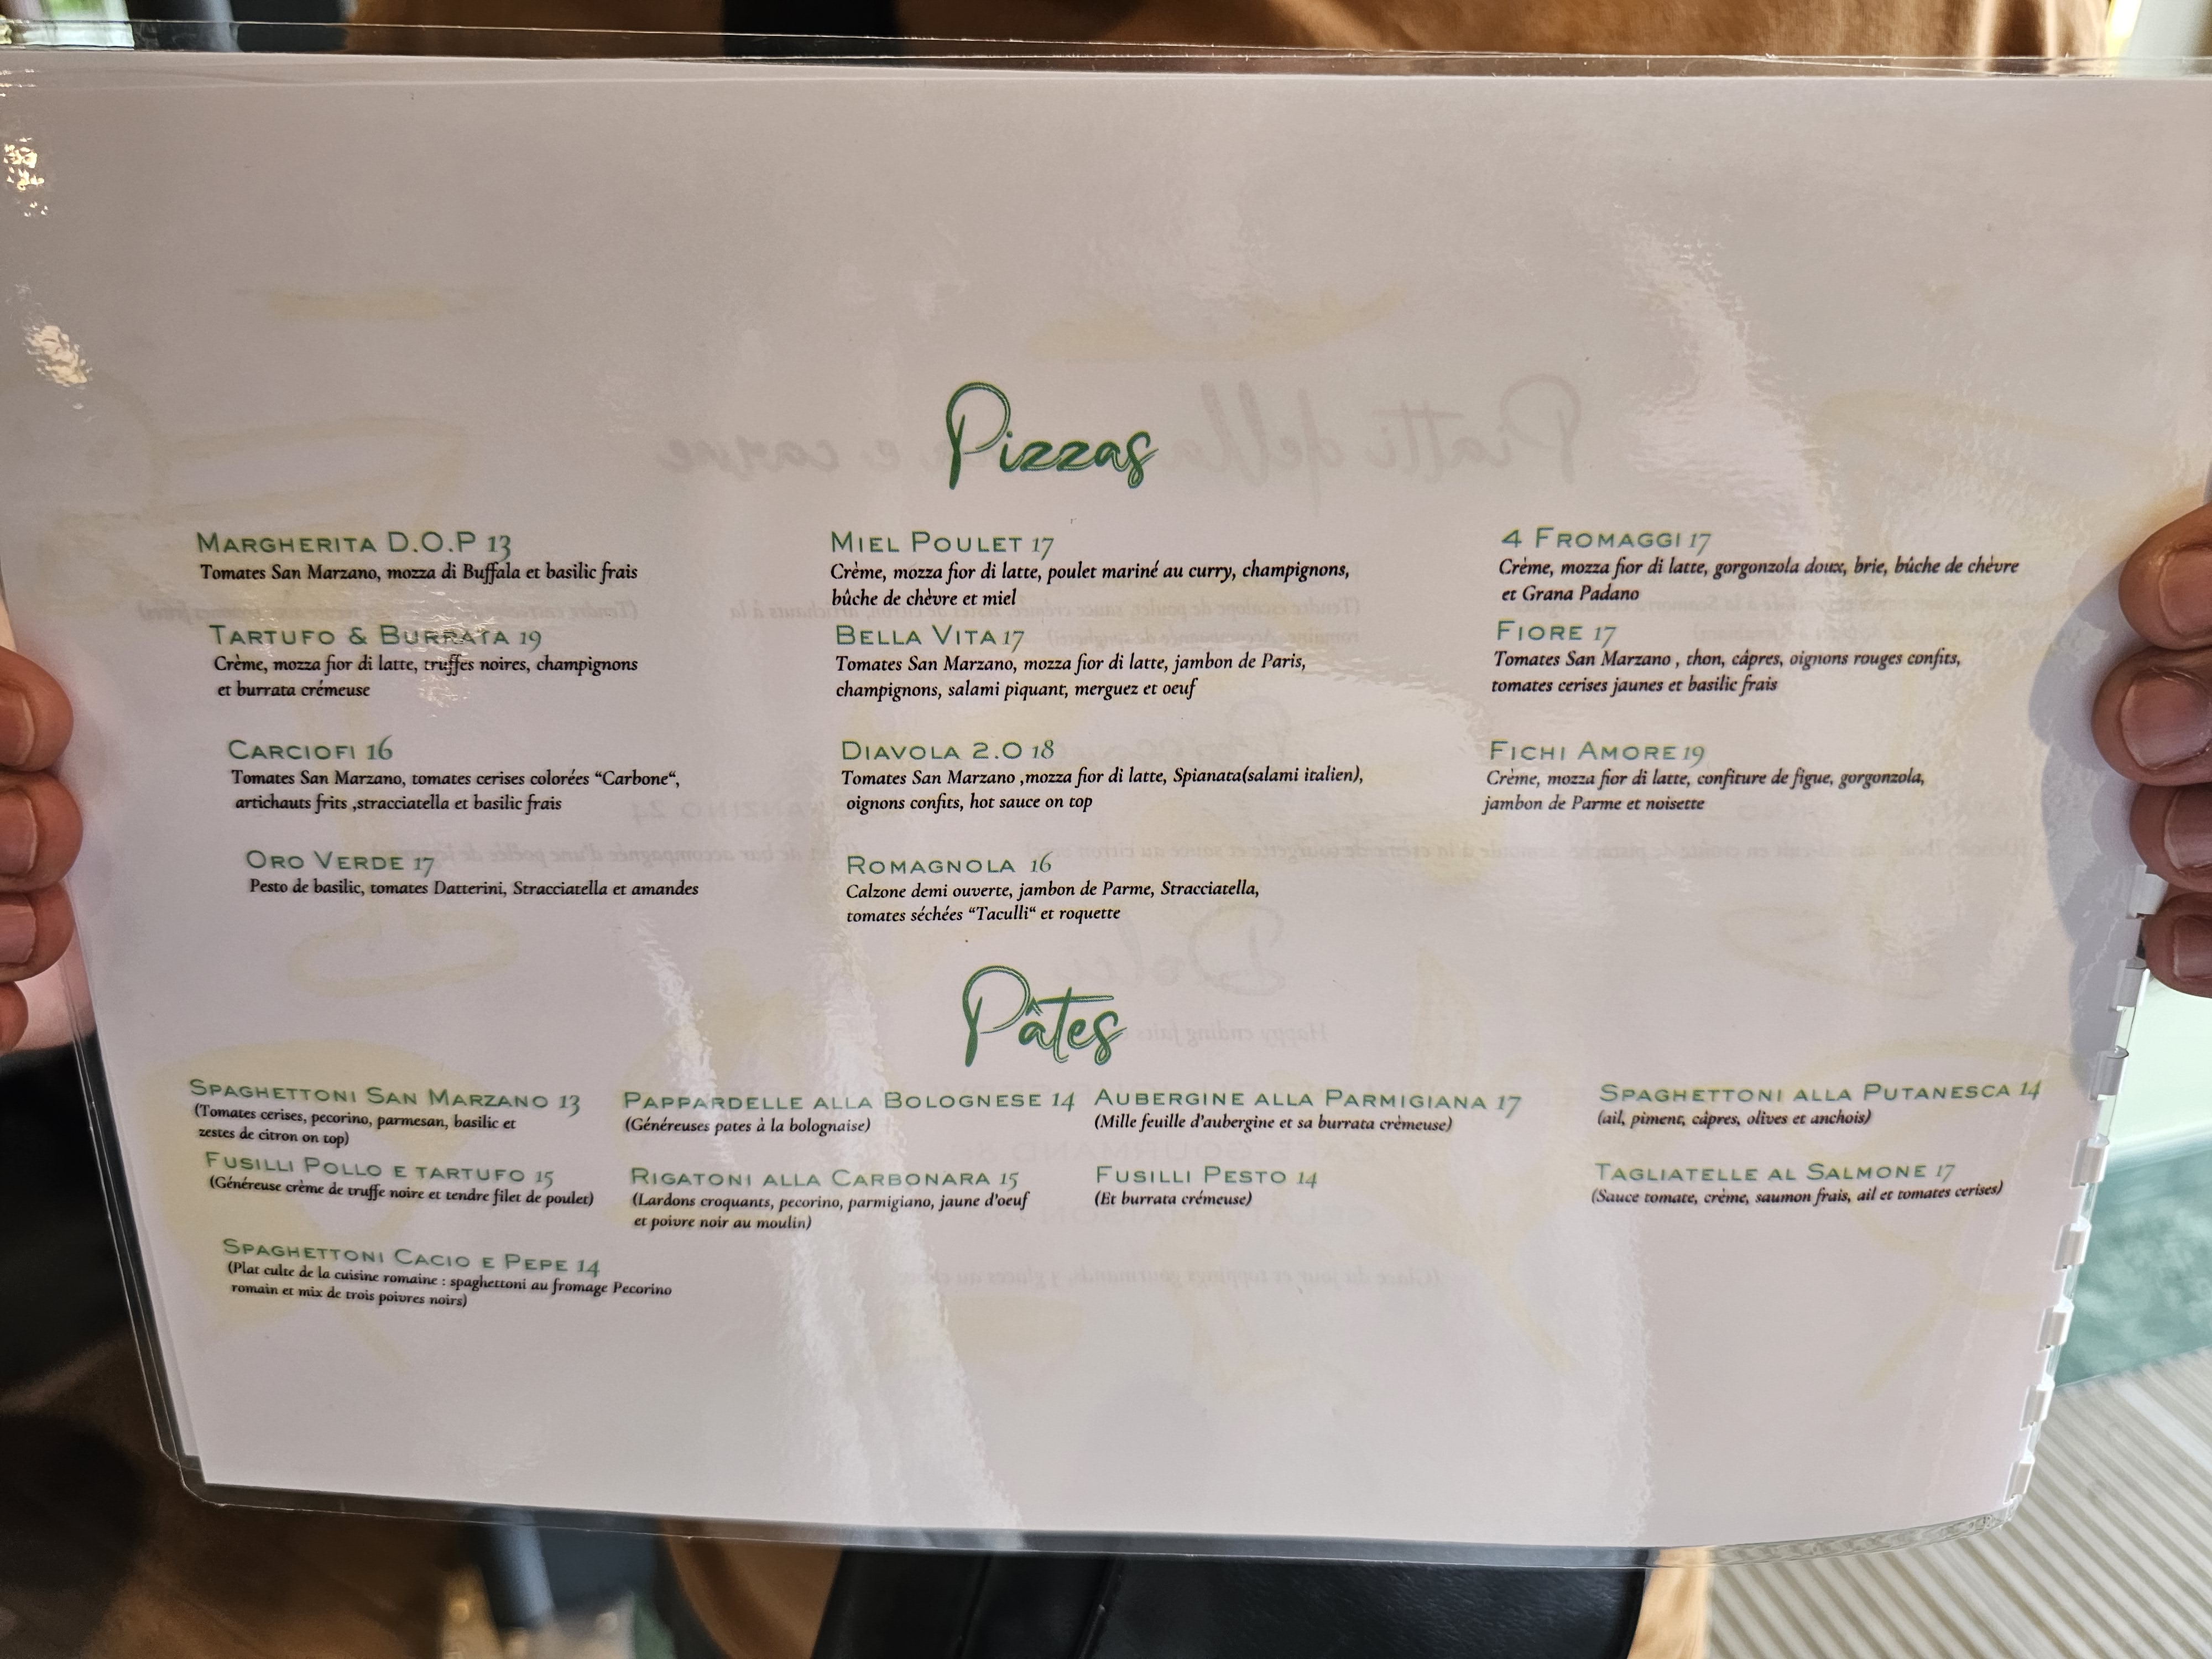 Pizzas
MARGHERITA D.O.P 13
Tomates San Marzano, mozza di Buffala et basilic frais
TARTUFO & BURRATA 19
Crème, mozza fior di latte, truffes noires, champignons
et burrata crémeuse
CARCIOFI 16
Tomates San Marzano, tomates cerises colorées “Carbone“,
artichauts frits ,stracciatella et basilic frais
ORO VERDE 17
Pesto de basilic, tomates Datterini, Stracciatella et amandes
MIEL POULET 17
Crème, mozza fior di latte, poulet mariné au curry, champignons,
bûche de chèvre et miel
BELLA VITA 17
Tomates San Marzano, mozza fior di latte, jambon de Paris,
champignons, salami piquant, merguez et oeuf
DIAVOLA 2.0 18
Tomates San Marzano ,mozza fior di latte, Spianata(salami italien),
oignons confits, hot sauce on top
ROMAGNOLA 16
Calzone demi ouverte, jambon de Parme, Stracciatella,
tomates séchées “Taculli“ et roquette
4 FROMAGGI 17
Crème, mozza fior di latte, gorgonzola doux, brie, bûche de chèvre
et Grana Padano
FIORE 17
Tomates San Marzano , thon, câpres, oignons rouges confits,
tomates cerises jaunes et basilic frais
FICHI AMORE 19
Crème, mozza fior di latte, confiture de figue, gorgonzola,
jambon de Parme et noisette
Pâtes
SPAGHETTONI SAN MARZANO 13
(Tomates cerises, pecorino, parmesan, basilic et
zestes de citron on top)
FUSILLI POLLO E TARTUFO 15
(Généreuse crème de truffe noire et tendre filet de poulet)
SPAGHETTONI CACIO E PEPE 14
(Plat culte de la cuisine romaine : spaghettoni au fromage Pecorino
romain et mix de trois poivres noirs)
PAPPARDELLE ALLA BOLOGNESE 14
(Généreuses pates à la bolognaise)
RIGATONI ALLA CARBONARA 15
(Lardons croquants, pecorino, parmigiano, jaune d'oeuf
et poivre noir au moulin)
AUBERGINE ALLA PARMIGIANA 17
(Mille feuille d'aubergine et sa burrata crèmeuse)
FUSILLI PESTO 14
(Et burrata crémeuse)
SPAGHETTONI ALLA PUTANESCA 14
(ail, piment, câpres, olives et anchois)
TAGLIATELLE AL SALMONE 17
(Sauce tomate, crème, saumon frais, ail et tomates cerises)